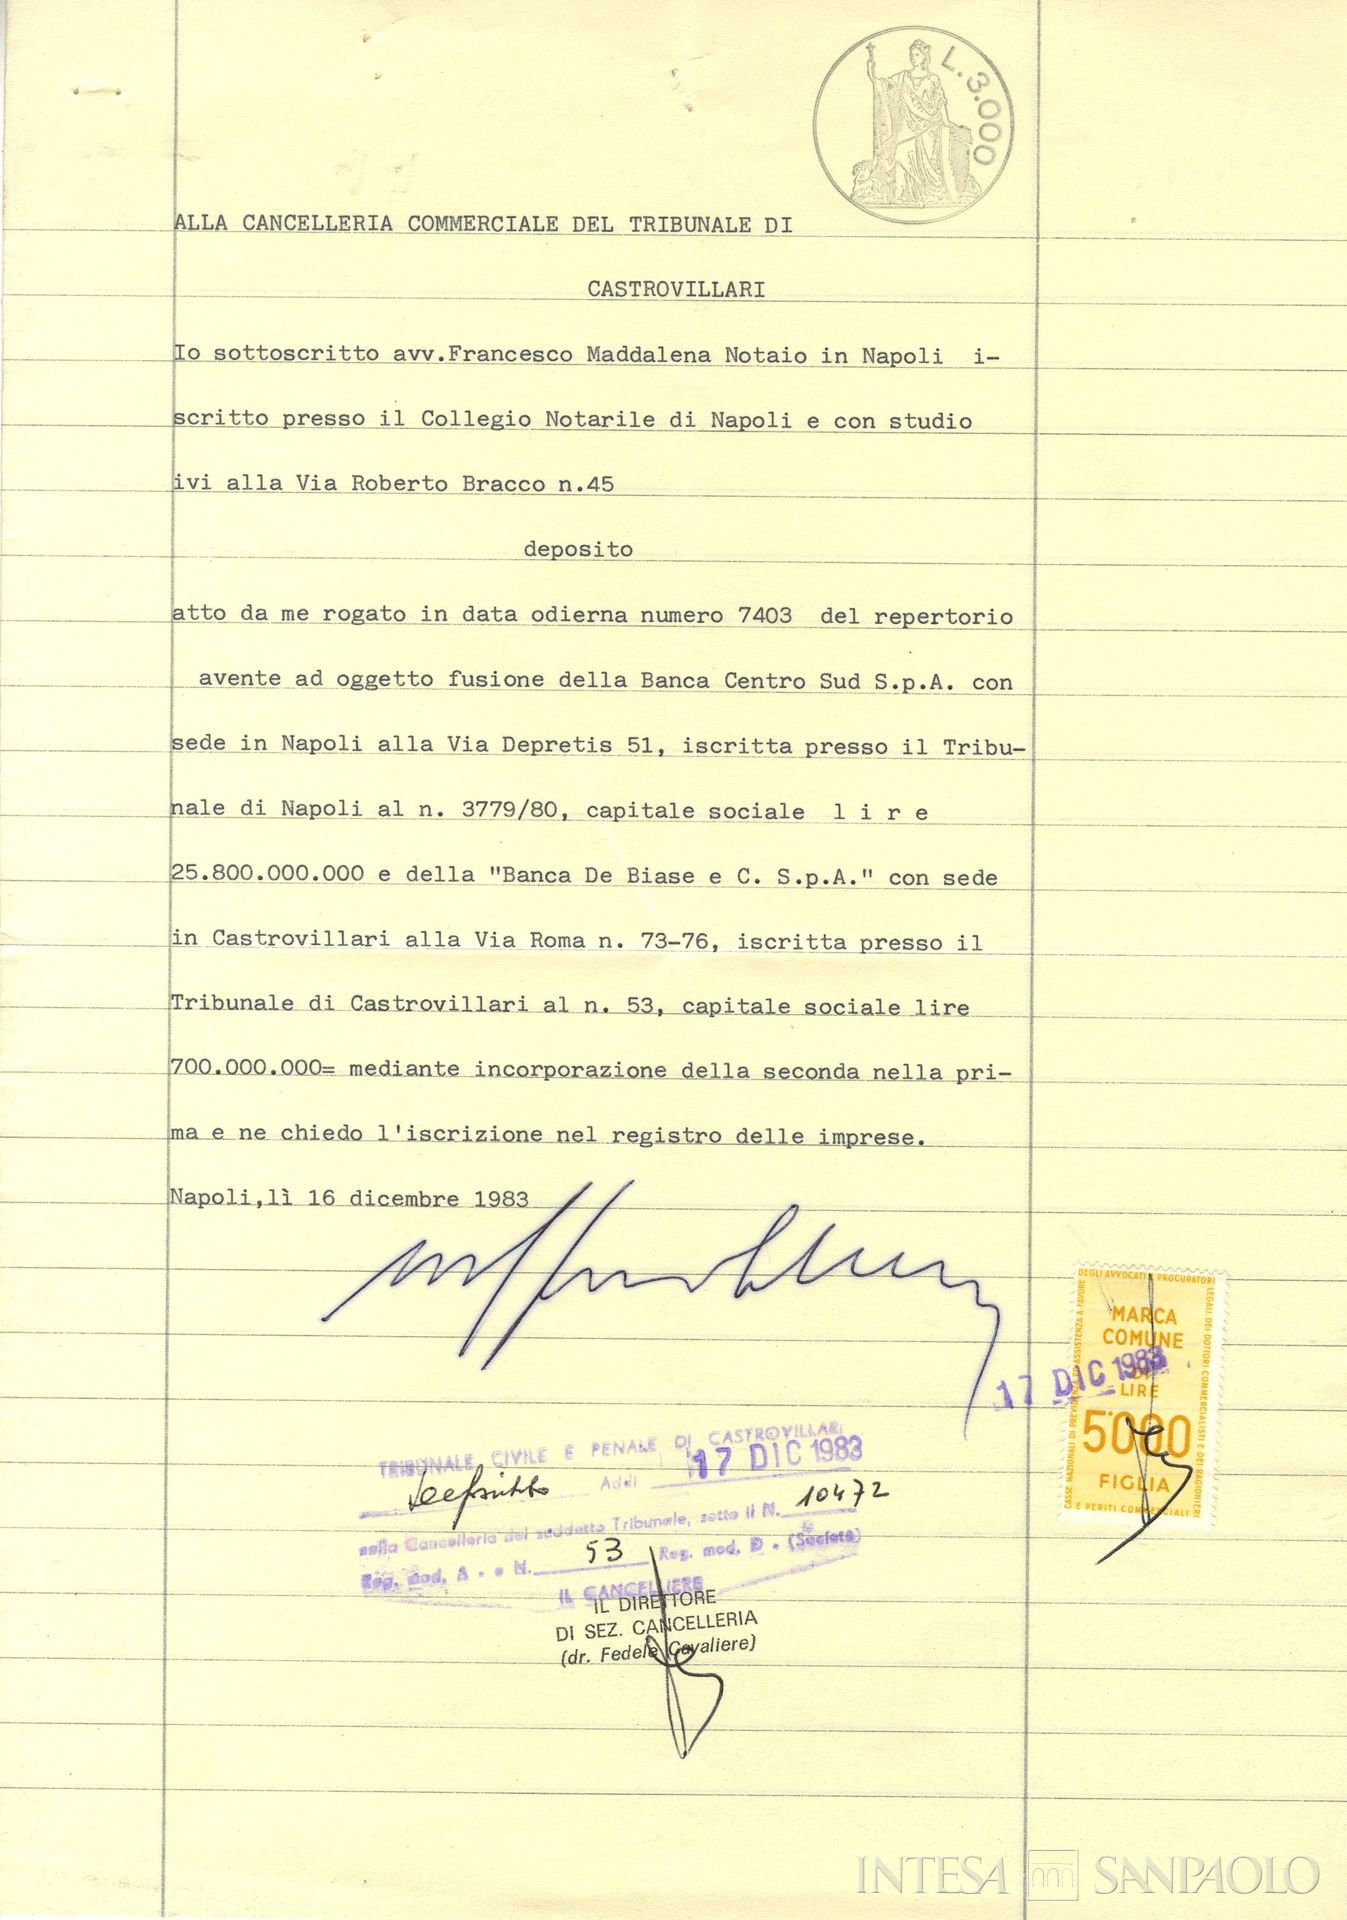 L. 3.000
ALLA CANCELLERIA COMMERCIALE DEL TRIBUNALE DI
CASTROVILLARI
Io sottoscritto avv.Francesco Maddalena Notaio in Napoli i-
scritto presso il Collegio Notarile di Napoli e con studio
ivi alla Via Roberto Bracco n.45
deposito
atto da me rogato in data odierna numero 7403 del repertorio
avente ad oggetto fusione della Banca Centro Sud S.p.A. con
sede in Napoli alla Via Depretis 51, iscritta presso il Tribu-
nale di Napoli al n. 3779/80, capitale sociale l i r e
25.800.000.000 e della "Banca De Biase e C. S.p.A." con sede
in Castrovillari alla Via Roma n. 73-76, iscritta presso il
Tribunale di Castrovillari al n. 53, capitale sociale lire
700.000.000= mediante incorporazione della seconda nella pri-
ma e ne chiedo l'iscrizione nel registro delle imprese.
Napoli,lì 16 dicembre 1983
DEGLI AVVOCATI E PROCURATORI
LEGALI DEI DOTTORI COMMERCIALISTI E DEI RAGIONIERI
E PERITI COMMERCIALI
CASSE NAZIONALI DI PREVIDENZA ED ASSISTENZA A FAVORE
MARCA
COMUNE
DI
LIRE
5000
FIGLIA
17 DIC 1983
TRIBUNALE CIVILE E PENALE DI CASTROVILLARI
Addì 17 DIC 1983
nella Cancelleria del suddetto Tribunale, sotto il N. 10472
Reg. mod. A - e N. 53 Reg. mod. D - (Società)
IL CANCELLIERE
IL DIRETTORE
DI SEZ. CANCELLERIA
(dr. Fedele Cavaliere)
INTESA SANPAOLO